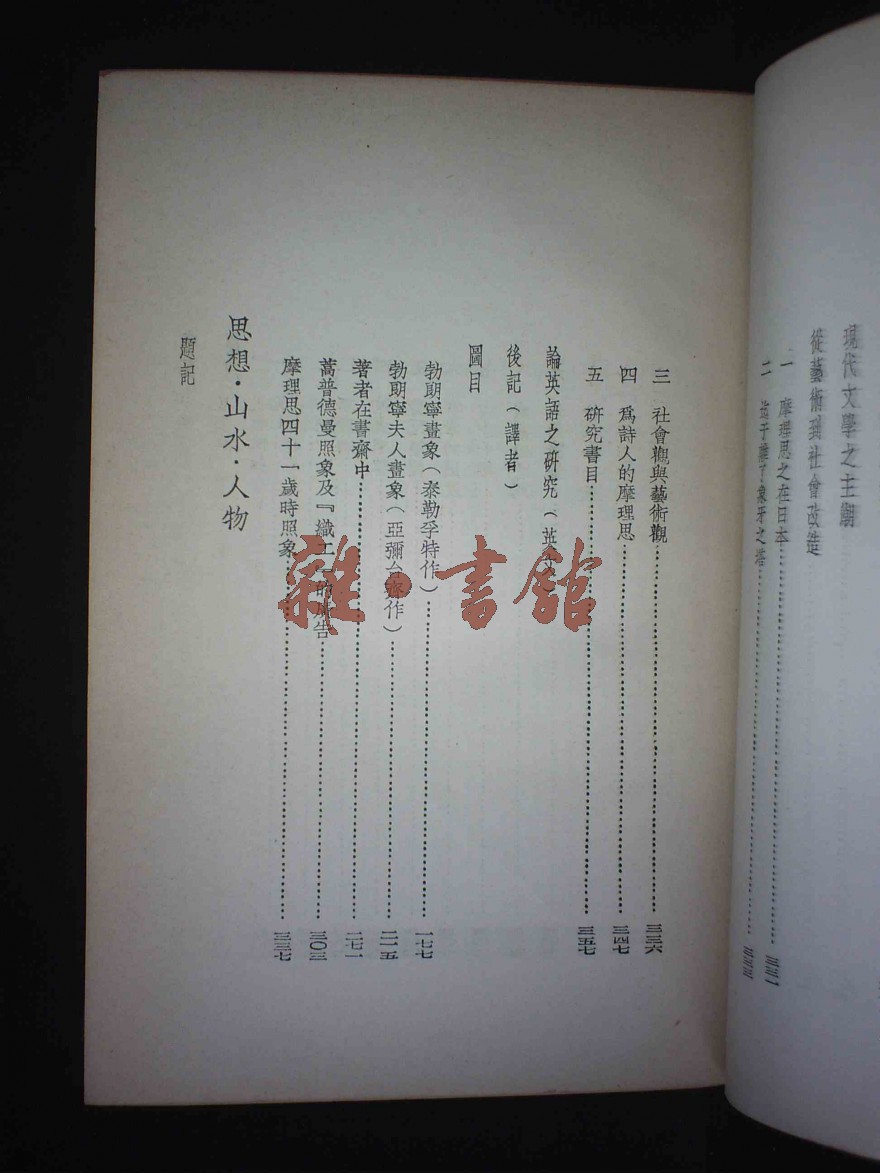 現代文學之主潮
從藝術到社會改造
一　摩理思之在日本……三三一
二　迄于離了象牙之塔……三三三
三　社會觀與藝術觀……三三六
四　爲詩人的摩理思……三四七
五　研究書目……三五七
論英語之研究（英文
後記（譯者）
圖目
勃朗寧畫象（泰勒孚特作）……一七七
勃朗寧夫人畫象（亞彌台齋作）……二一五
著者在書齋中……二七一
蒿普德曼照象及『織工』的廣告……三〇三
摩理思四十一歲時照象……三三七
思想·山水·人物
題記
雜·書館